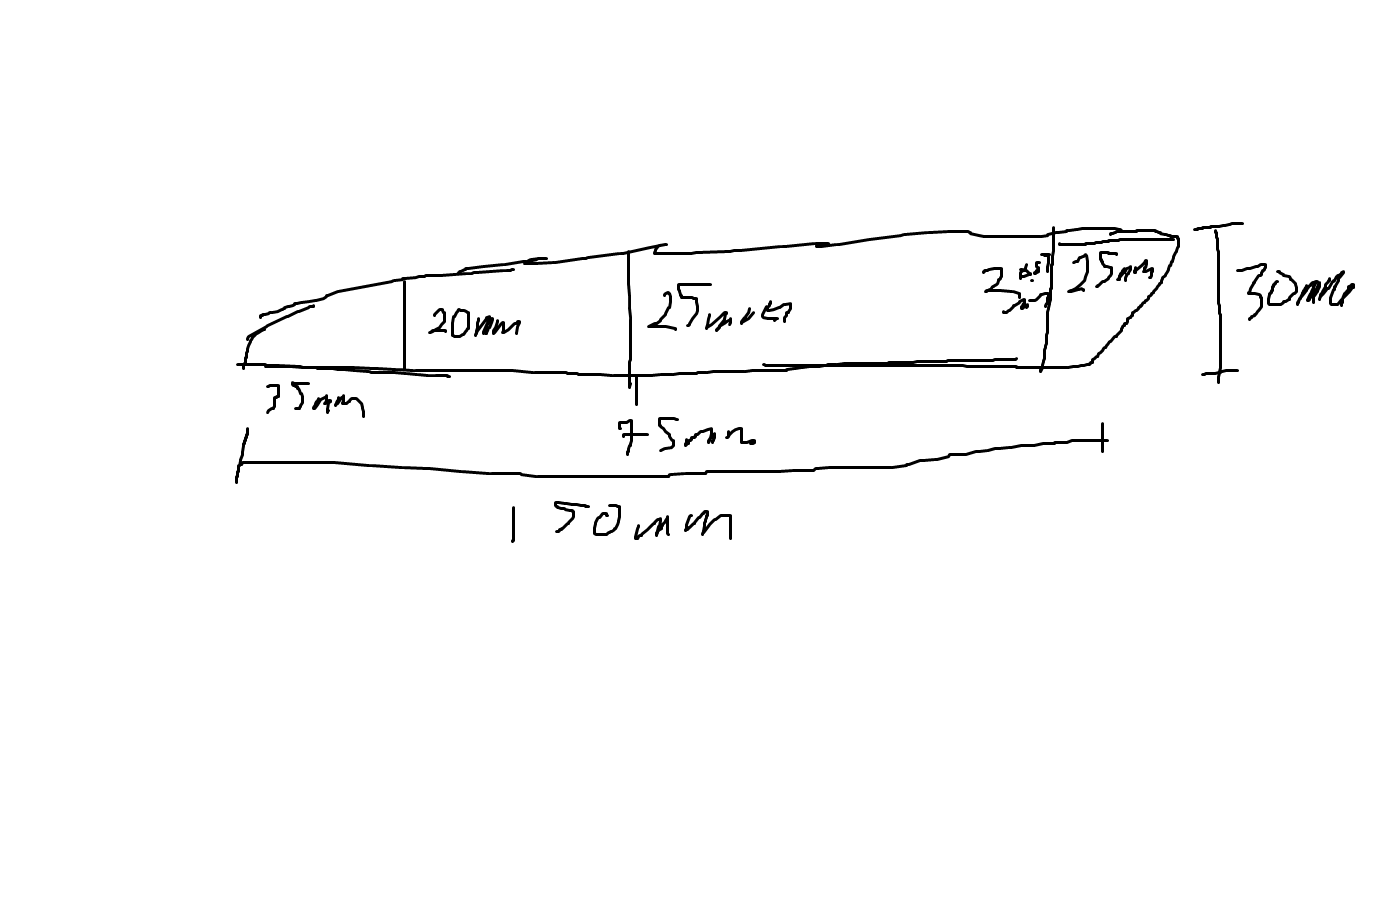 20mm
25mm
25mm
30mm
35mm
75mm
150mm